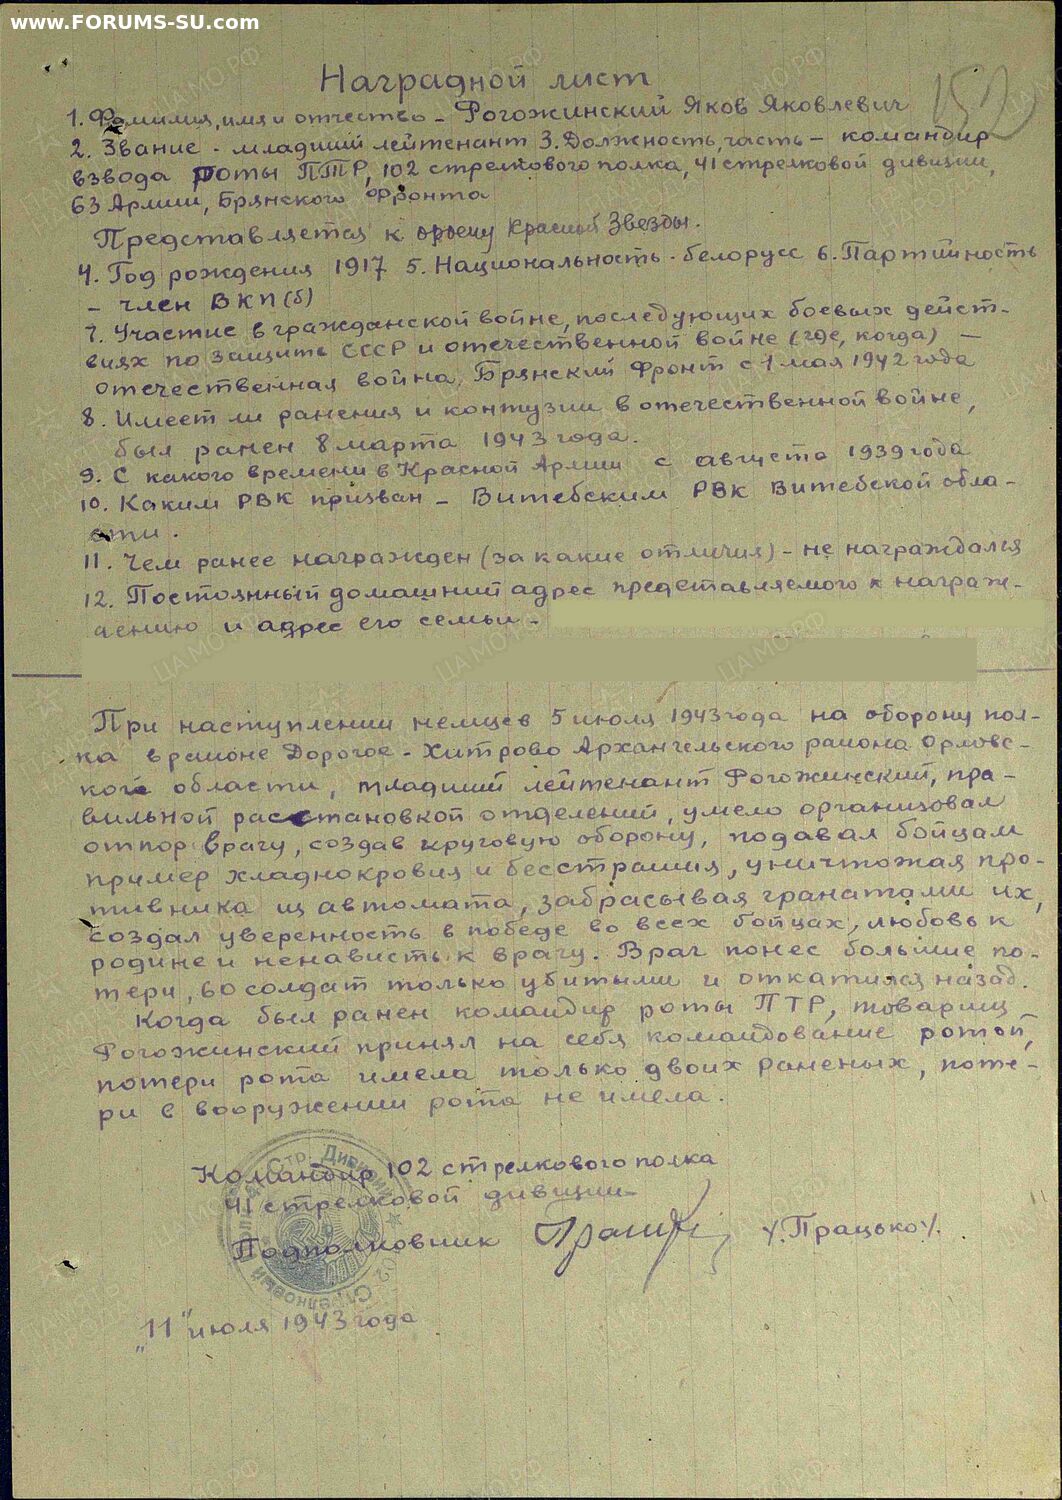 www.FORUMS-SU.com
152
Наградной лист
1. Фамилия, имя и отчество - Рогожинский Яков Яковлевич
2. Звание - младший лейтенант 3. Должность, часть - командир
взвода роты ПТР, 102 стрелкового полка, 41 стрелковой дивизии,
63 Армии, Брянского Фронта
Представляется к ордену Красной Звезды.
4. Год рождения 1917 5. Национальность - белорусс 6. Партийность
- член ВКП(б)
7. Участие в гражданской войне, последующих боевых дейст-
виях по защите СССР и отечественной войне (где, когда) -
отечественная война, Брянский Фронт с 1 мая 1942 года
8. Имеет ли ранения и контузии в отечественной войне,
был ранен 8 марта 1943 года.
9. С какого времени в Красной Армии с августа 1939 года
10. Каким РВК призван - Витебским РВК Витебской обла-
сти.
11. Чем ранее награжден (за какие отличия) - не награждался
12. Постоянный домашний адрес представляемого к награж-
дению и адрес его семьи -
При наступлении немцев 5 июля 1943 года на оборону пол-
ка в районе Дорогое - Хитрово Архангельского района Орловс-
кой области, младший лейтенант Рогожинский, пра-
вильной расстановкой отделений, умело организовал
отпор врагу, создав круговую оборону, подавал бойцам
пример хладнокровия и бесстрашия, уничтожая про-
тивника из автомата, забрасывая гранатами их,
создал уверенность в победе во всех бойцах, любовь к
родине и ненависть к врагу. Враг понес большие по-
тери, 60 солдат только убитыми и откатился назад.
Когда был ранен командир роты ПТР, товарищ
Рогожинский принял на себя командование ротой,
потери рота имела только двоих раненых, поте-
ри в вооружении рота не имела.
Командир 102 стрелкового полка
41 стрелковой дивизии
Подполковник /Працько/.
"11" июля 1943 года